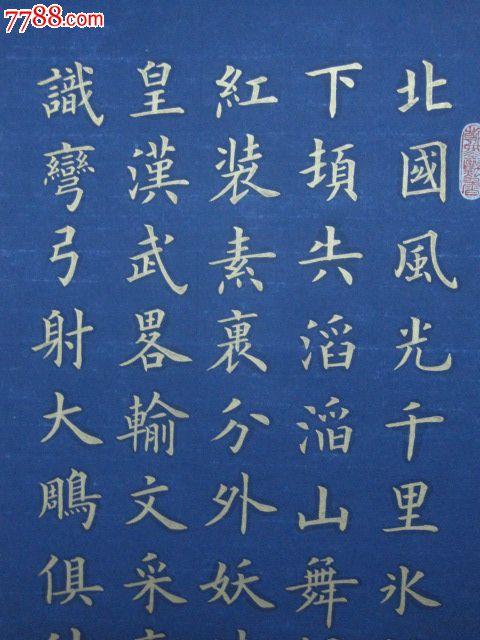 7788.com
北國風光千里氷
下頓失滔滔山舞
紅装素裹分外妖
皇漢武畧輸文采
識彎弓射大鵰俱